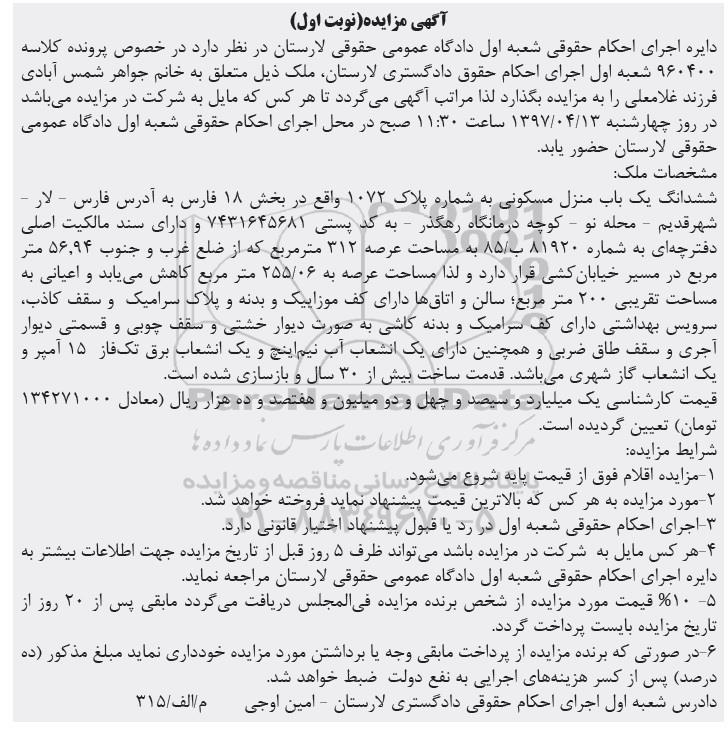 آگهی مزایده(نوبت اول)
دایره اجرای احکام حقوقی شعبه اول دادگاه عمومی حقوقی لارستان در نظر دارد در خصوص پرونده کلاسه
۹۶۰۴۰۰ شعبه اول اجرای احکام حقوق دادگستری لارستان، ملک ذیل متعلق به خانم جواهر شمس آبادی
فرزند غلامعلی را به مزایده بگذارد لذا مراتب آگهی می‌گردد تا هر کس که مایل به شرکت در مزایده می‌باشد
در روز چهارشنبه ۱۳۹۷/۰۴/۱۳ ساعت ۱۱:۳۰ صبح در محل اجرای احکام حقوقی شعبه اول دادگاه عمومی
حقوقی لارستان حضور یابد.
مشخصات ملک:
ششدانگ یک باب منزل مسکونی به شماره پلاک ۱۰۷۲ واقع در بخش ۱۸ فارس به آدرس فارس - لار -
شهرقدیم - محله نو - کوچه درمانگاه رهگذر - به کد پستی ۷۴۳۱۶۴۵۶۸۱ و دارای سند مالکیت اصلی
دفترچه‌ای به شماره ۸۱۹۲۰ ب/۸۵ به مساحت عرصه ۳۱۲ مترمربع که از ضلع غرب و جنوب ۵۶,۹۴ متر
مربع در مسیر خیابان‌کشی قرار دارد و لذا مساحت عرصه به ۲۵۵/۰۶ متر مربع کاهش می‌یابد و اعیانی به
مساحت تقریبی ۲۰۰ متر مربع؛ سالن و اتاق‌ها دارای کف موزاییک و بدنه و پلاک سرامیک و سقف کاذب،
سرویس بهداشتی دارای کف سرامیک و بدنه کاشی به صورت دیوار خشتی و سقف چوبی و قسمتی دیوار
آجری و سقف طاق ضربی و همچنین دارای یک انشعاب آب نیم‌اینچ و یک انشعاب برق تک‌فاز ۱۵ آمپر و
یک انشعاب گاز شهری می‌باشد. قدمت ساخت بیش از ۳۰ سال و بازسازی شده است.
قیمت کارشناسی یک میلیارد و سیصد و چهل و دو میلیون و هفتصد و ده هزار ریال (معادل ۱۳۴۲۷۱۰۰۰
تومان) تعیین گردیده است.
شرایط مزایده:
۱-مزایده اقلام فوق از قیمت پایه شروع می‌شود.
۲-مورد مزایده به هر کس که بالاترین قیمت پیشنهاد نماید فروخته خواهد شد.
۳-اجرای احکام حقوقی شعبه اول در رد یا قبول پیشنهاد اختیار قانونی دارد.
۴-هر کس مایل به شرکت در مزایده باشد می‌تواند ظرف ۵ روز قبل از تاریخ مزایده جهت اطلاعات بیشتر به
دایره اجرای احکام حقوقی شعبه اول دادگاه عمومی حقوقی لارستان مراجعه نماید.
۵- ۱۰% قیمت مورد مزایده از شخص برنده مزایده فی‌المجلس دریافت می‌گردد مابقی پس از ۲۰ روز از
تاریخ مزایده بایست پرداخت گردد.
۶-در صورتی که برنده مزایده از پرداخت مابقی وجه یا برداشتن مورد مزایده خودداری نماید مبلغ مذکور (ده
درصد) پس از کسر هزینه‌های اجرایی به نفع دولت ضبط خواهد شد.
دادرس شعبه اول اجرای احکام حقوقی دادگستری لارستان - امین اوجی م/الف/۳۱۵
ParsNamadData
مرکز فرآوری اطلاعات پارس نماد داده‌ها
پایگاه اطلاع رسانی مناقصه و مزایده
۰۲۱-۸۸۳۴۹۶۷۰-۵